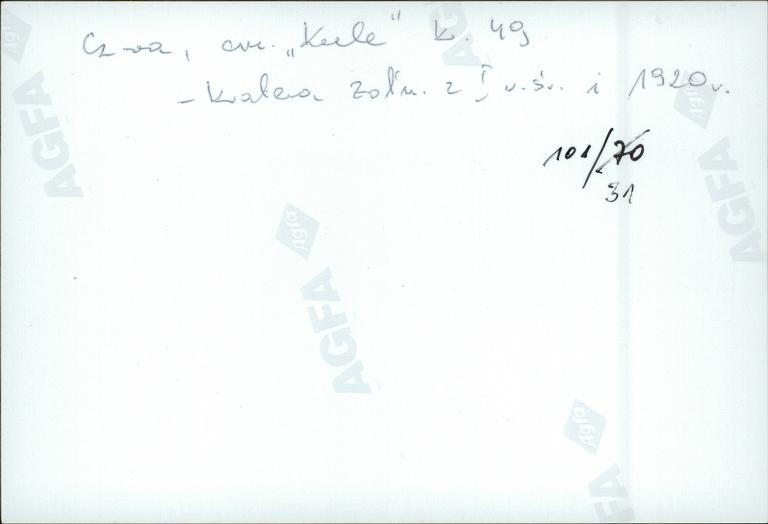 Cz-wa, cm. „Kule" k. 49
- kwatera żołn. z I w. św. i 1920 r.
101/70
31
AGFA
Agfa
AGFA
Agfa
AGFA
Agfa
AGFA
Agfa
AGFA